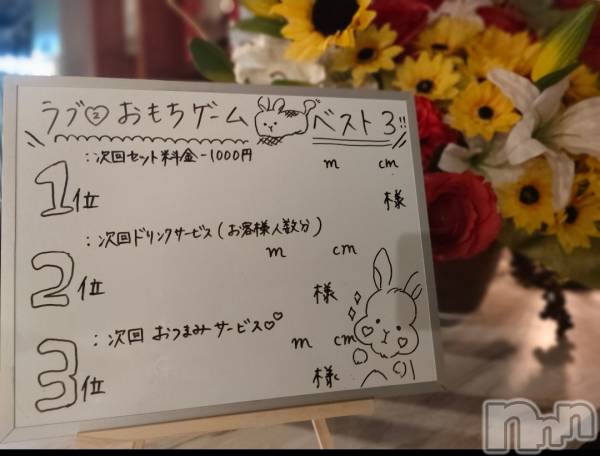 ラブ②おもちゲーム ベスト3!!
:次回セット料金-1000円
m cm
1位 様
:次回ドリンクサービス(お客様人数分)
m cm
2位 様
:次回 おつまみサービス♡♡
m cm
3位 様
nnn